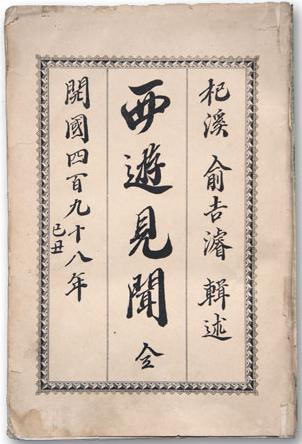 杞溪 俞吉濬 輯述
西遊見聞 全
開國四百九十八年 己丑